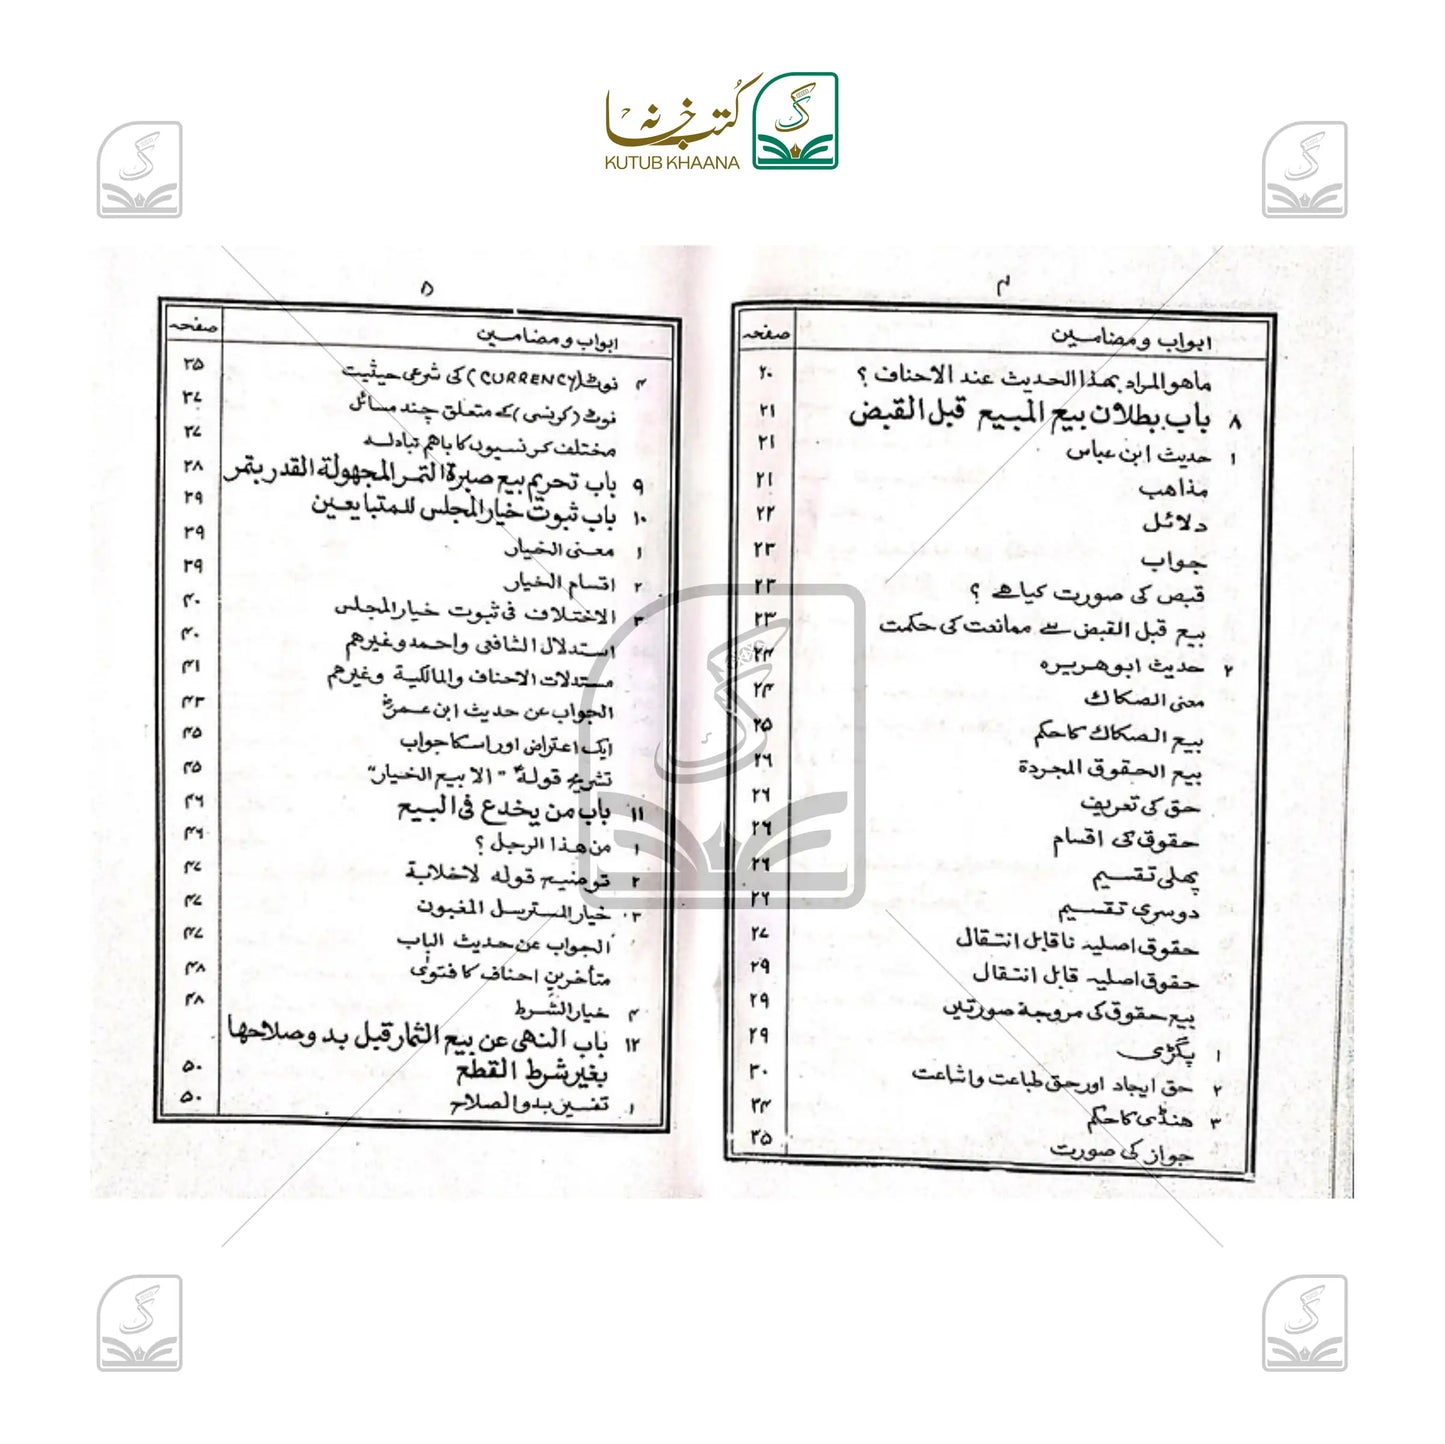 کتب خانہ
KUTUB KHAANA
۴
ابواب و مضامین صفحہ
ماھو المراد بھذا الحدیث عند الاحناف ؟ ۲۰
۸ باب بطلان بیع المبیع قبل القبض ۲۱
۱ حدیث ابن عباس ۲۱
مذاھب ۲۱
دلائل ۲۲
جواب ۲۳
قبض کی صورت کیا ہے ؟ ۲۳
بیع قبل القبض سے ممانعت کی حکمت ۲۳
۲ حدیث ابو ھریرہ ۲۴
معنی الصکاک ۲۴
بیع الصکاک کا حکم ۲۵
بیع الحقوق المجردۃ ۲۶
حق کی تعریف ۲۶
حقوق کی اقسام ۲۶
پھلی تقسیم ۲۶
دوسری تقسیم ۲۶
حقوق اصلیہ ناقابل انتقال ۲۷
حقوق اصلیہ قابل انتقال ۲۹
بیع حقوق کی مروجۃ صورتیں ۲۹
۱ پگڑی ۲۹
۲ حق ایجاد اور حق طباعت و اشاعت ۳۰
۳ ھنڈی کا حکم ۳۴
جواز کی صورت ۳۵
۵
ابواب و مضامین صفحہ
۴ نوٹ (CURRENCY) کی شرعی حیثیت ۳۵
نوٹ (کرنسی) کے متعلق چند مسائل ۳۷
مختلف کرنسیوں کا باھم تبادلہ ۳۷
۹ باب تحریم بیع صبرۃ التمر المجھولۃ القدر بتمر ۳۸
۱۰ باب ثبوت خیار المجلس للمتبایعین ۳۹
۱ معنی الخیار ۳۹
۲ اقسام الخیار ۳۹
۳ الاختلاف فی ثبوت خیار المجلس ۴۰
استدلال الشافعی و احمد وغیرھم ۴۰
مستدلات الاحناف والمالکیۃ وغیرھم ۴۱
الجواب عن حدیث ابن عمرؓ ۴۳
ایک اعتراض اور اسکا جواب ۴۵
تشریح قولہ "الا بیع الخیار" ۴۵
۱۱ باب من یخدع فی البیع ۴۶
۱ من ھذا الرجل ؟ ۴۶
۲ توضیح قولہ لاخلابۃ ۴۷
۳ خیار المسترسل المغبون ۴۷
الجواب عن حدیث الباب ۴۷
متأخرین احناف کا فتویٰ ۴۸
۴ خیار الشرط ۴۸
۱۲ باب النھی عن بیع الثمار قبل بدو صلاحھا
بغیر شرط القطع ۵۰
۱ تفسیر بدو الصلاح ۵۰